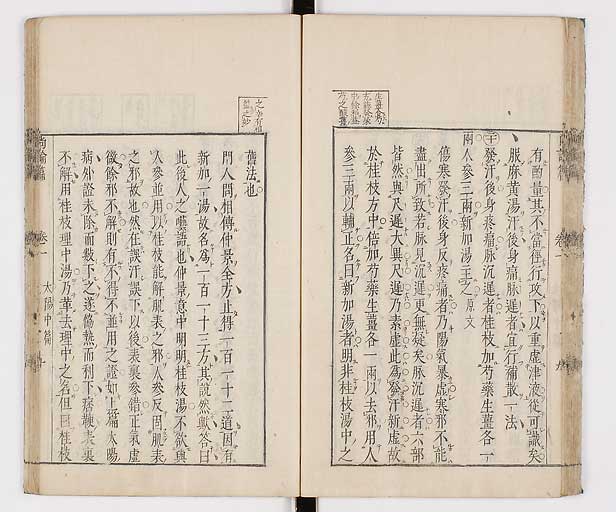 有酌量其不當徑行攻下以重虛津液從可識矣
服麻黃湯汗後身痛脉遲者宜行補散一法
發汗後身疼痛脉沉遲者桂枝加芍藥生薑各一
兩人參三兩新加湯主之原文
傷寒發汗後身反疼痛者乃陽氣暴虛寒邪不能
盡出所致若脉見沉遲更無疑矣脉沉遲者六部
皆然與尺遲大異尺遲乃素虛此為發汗新虛故
於桂枝方中倍加芍藥生薑各一兩以去邪用人
參三兩以輔正名曰新加湯者明非桂枝湯中之
舊法也
門人問相傳仲景全方止得一百一十二道因有
新加一湯故名為一百一十三方其說然與答曰
此後人之囈語也仲景意中明明桂枝湯不欲與
人參並用以桂枝能解肌表之邪人參反固肌表
之邪故也然在誤汗誤下以後表裏參錯正氣虛
微餘邪不解則有不得不並用之證如上篇太陽
病外證未除而數下之遂協熱而利下痞鞕表裏
不解用桂枝理中湯乃革去理中之名但曰桂枝
尚論篇
卷一
太陽中篇
十